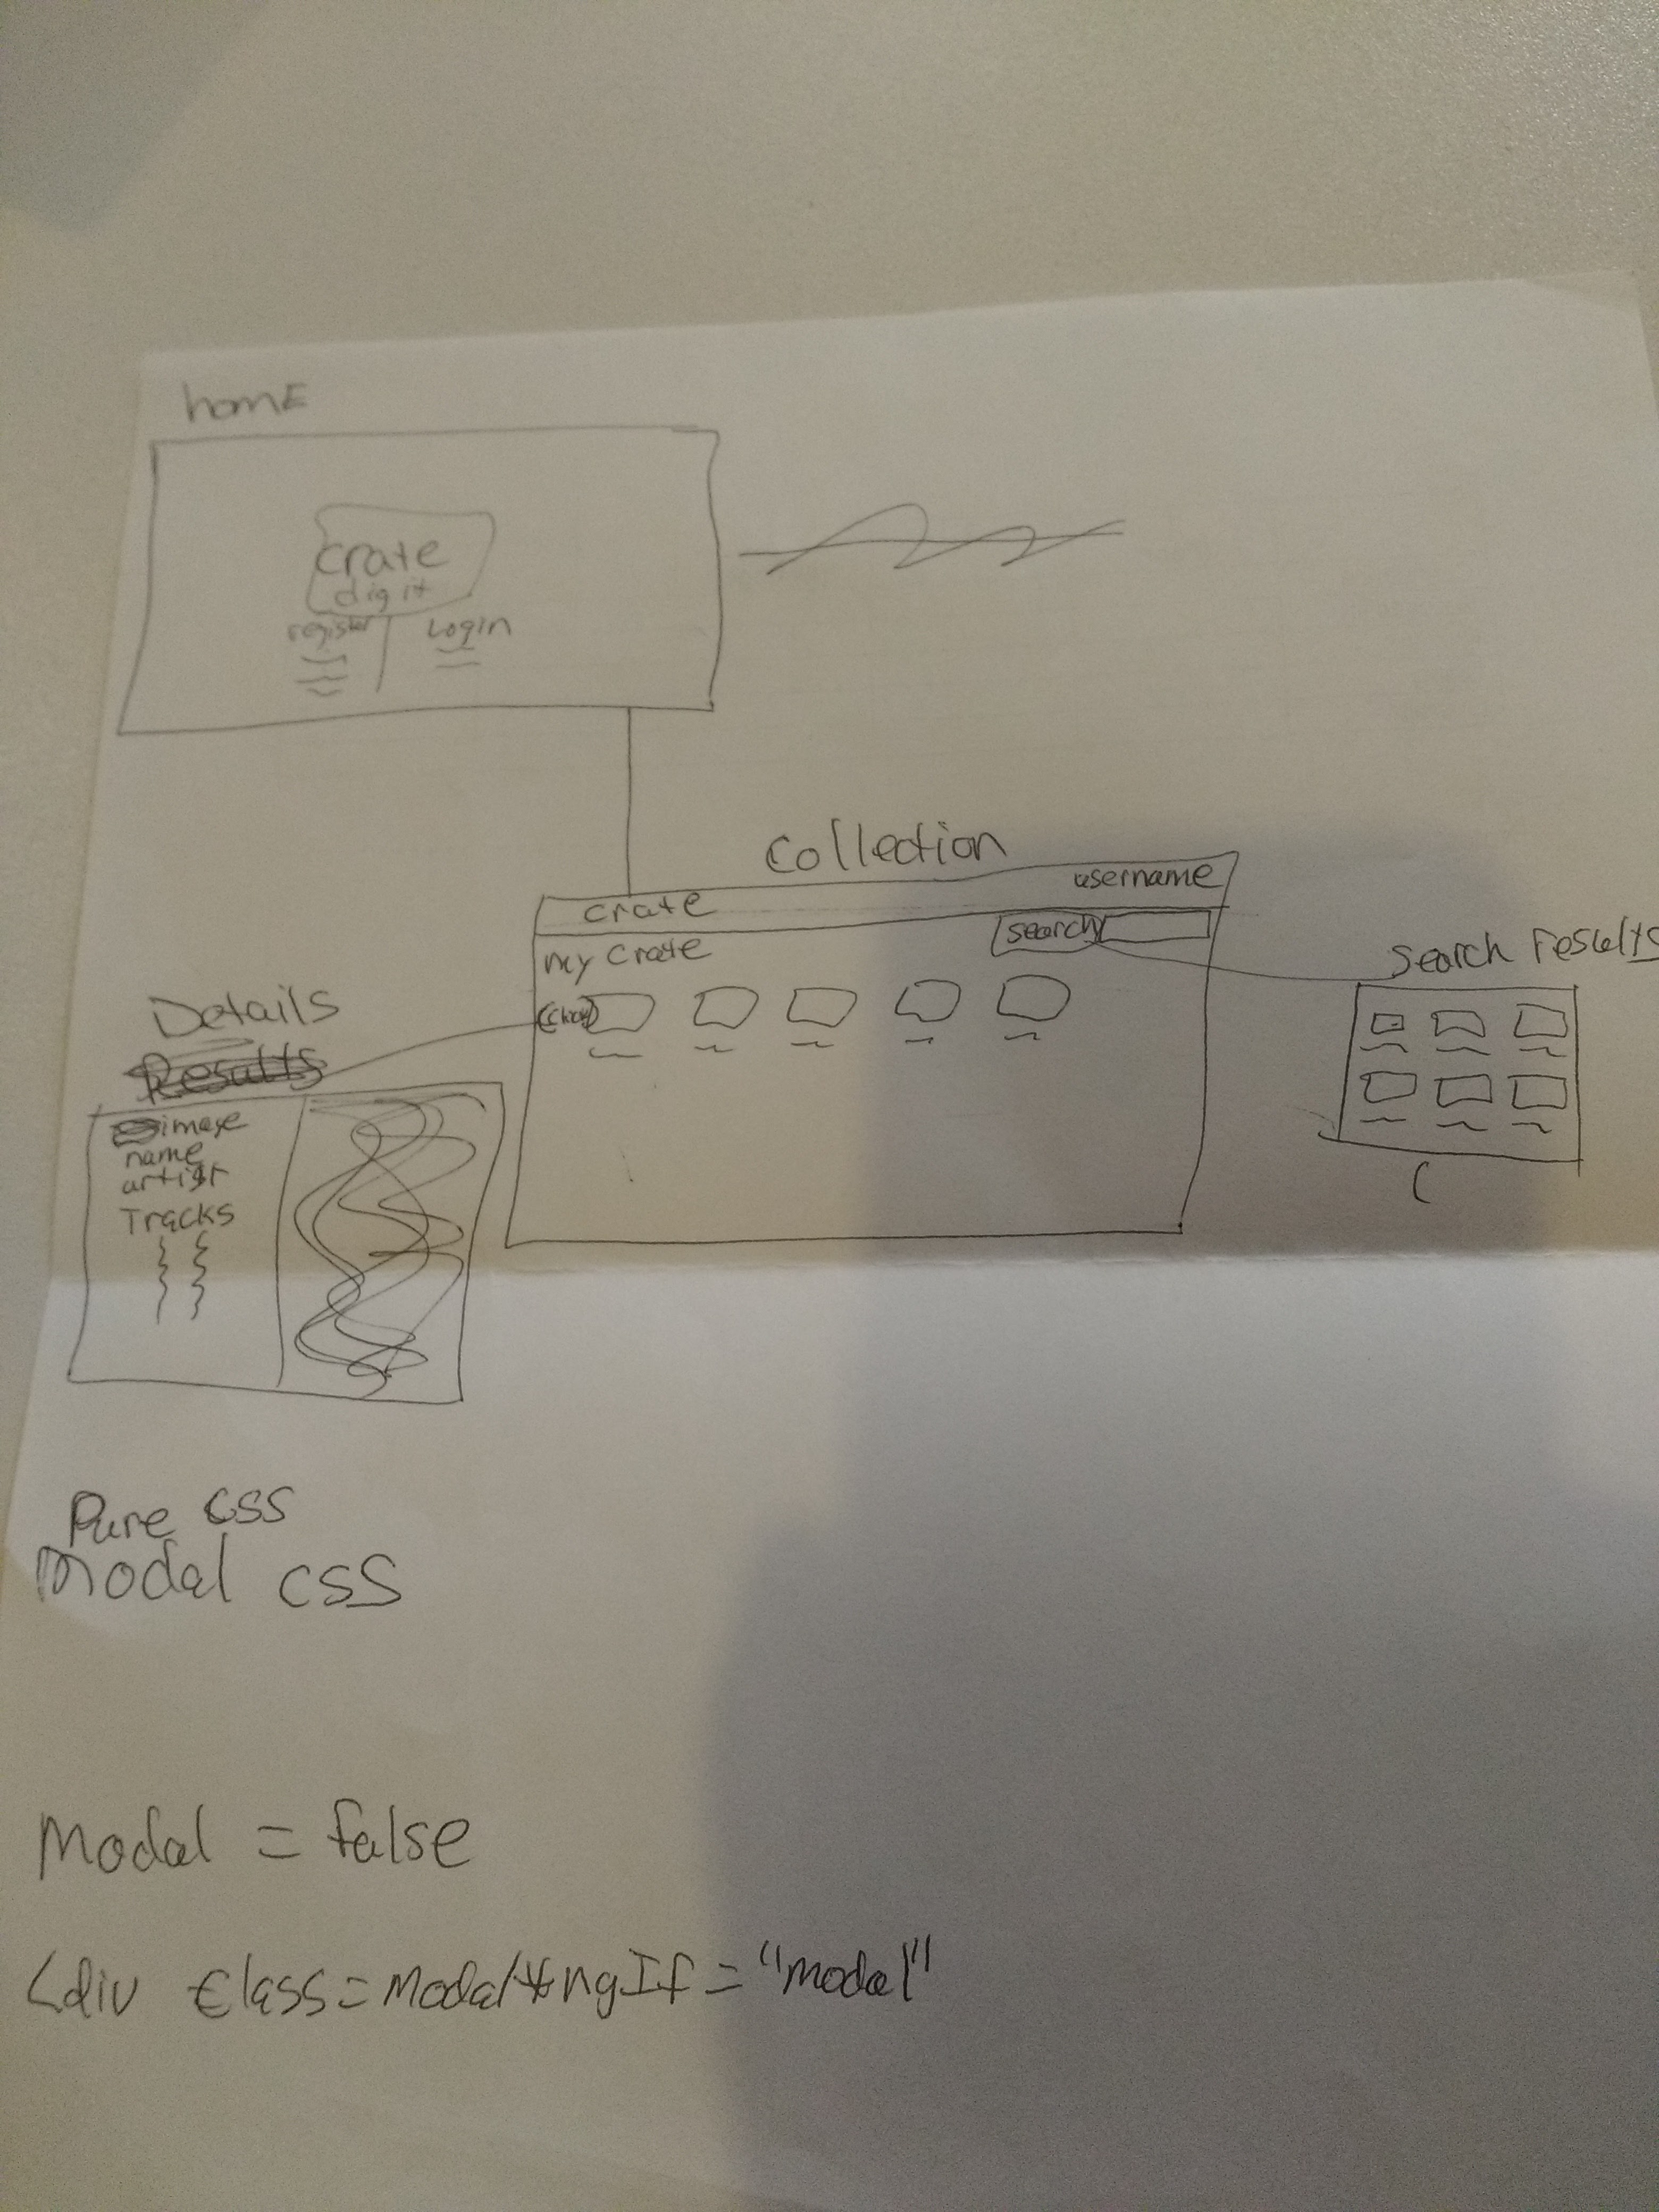 home
crate
dig it
register Login
Collection
crate username
my crate search
(click)
search results
Details
Results
image
name
artist
Tracks
Pure css
Modal css
Modal = false
<div class=Modal *ngIf = "modal"